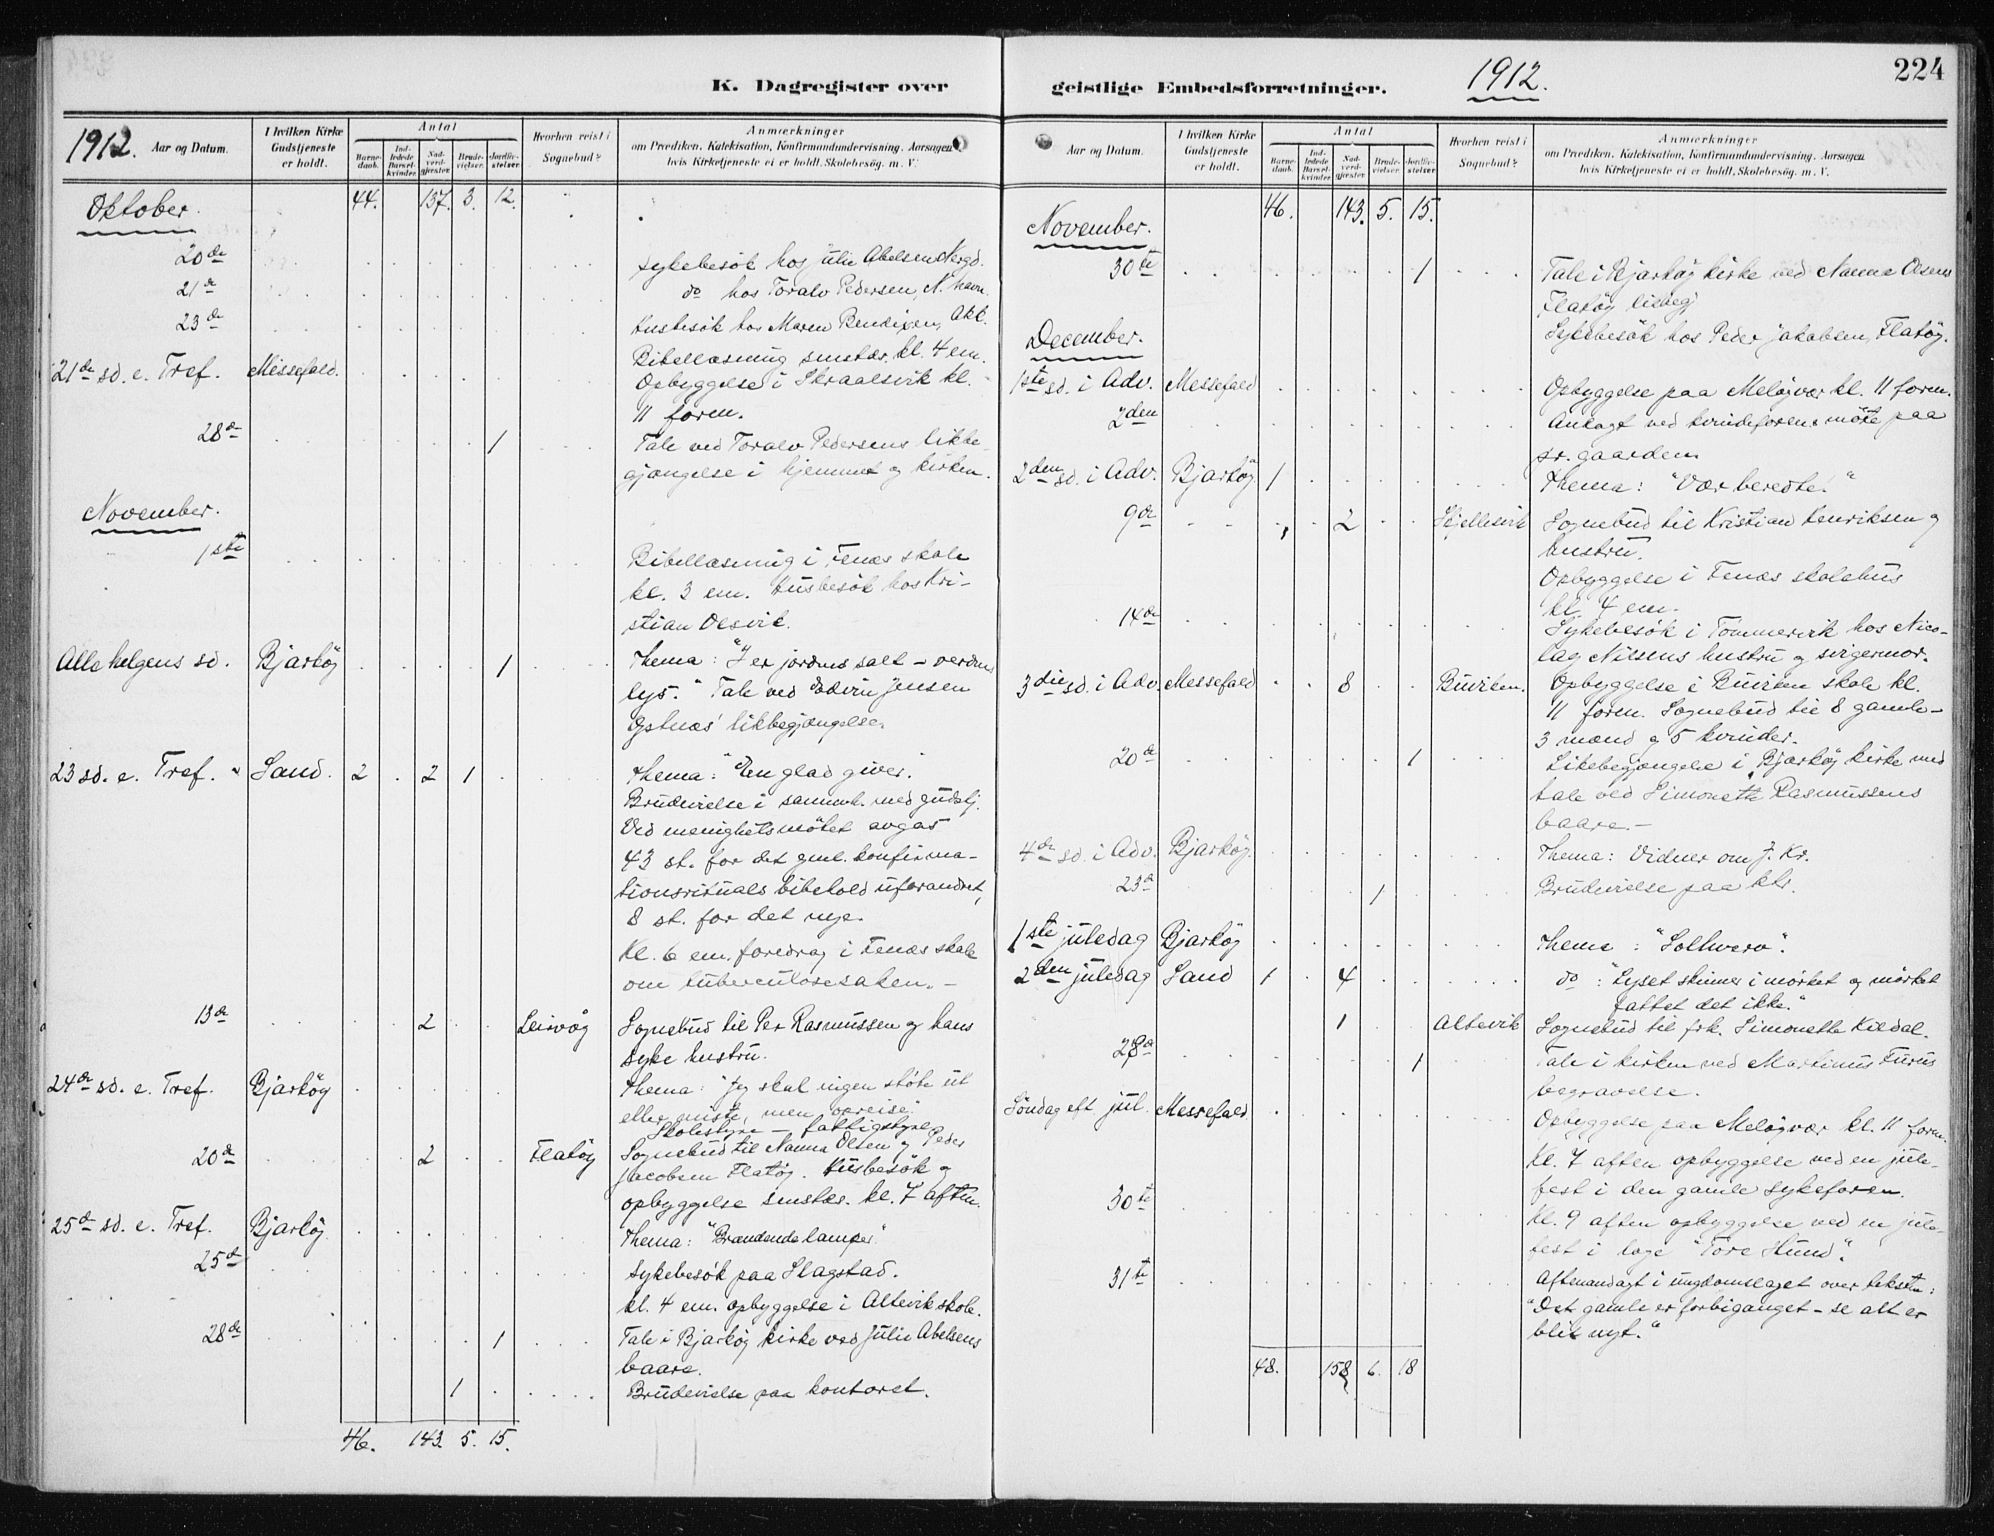 K. Dagregister over
1912.
Aar og Datum.
I hvilken Kirke Gudstjeneste er holdt.
Antal
Barne-daab.
Ind-ledede Barsel-kvinder.
Nad-verd-gjæster
Brude-vielser.
Jordfæ-stelser
Hvorhen reist i Sognebud?
Anmærkninger
om Prædiken, Katekisation, Konfirmandundervisning. Aarsagen,
hvis Kirketjeneste ei er holdt. Skolebesøg. m. V.
Oktober. 44. 137. 3. 12.
20de Sykebesök hos Julie Abelsen Nergd.
21de do hos Toralv Pedersen, N. havn.
23de Husbesök hos Maren Bendixen, Akk.
Bibellæsning smstæs. kl. 4 em.
21de sd. e. Tref. Messefald. Opbyggelse i Skraalsvik kl.
11 form.
28de 1 Tale ved Toralv Pedersens likbe-
gjængelse i hjemmet og kirken.
November.
1ste Bibellæsning i Fenæs skole
kl. 3 em. Husbesök hos Kri-
stian Olsvik.
Alle helgens sd. Bjarköy 1 Thema: "I er jordens salt – verdens
lys." Tale ved Edvin Jensen
Östnæs' likbegjængelse.
23 sd. e. Tref. Sand. 2 2 1 Thema: "En glad giver.
Brudevielse i sammenh. med gudstj.
Ved menighetsmötet avgas
43 st. for det gml. konfirma-
tionsrituals bibehold uforandret,
8 st. for det nye.
Kl. 6 em. foredrag i Fenæs skole
om tuberculosesaken. –
13de 2 Leirvåg Sognebud til Per Rasmussen og hans
syke hustru.
24de sd. e. Tref. Bjarköy Thema: "Jeg skal ingen stöte ut
eller miste, men opreise."
Skolestyre – fattigstyre
20de 2 Flatöy Sognebud til Nanna Olsen og Peder
Jacobsen Flatöy. Husbesök og
opbyggelse smstæs. kl. 7 aften.
25de sd. e. Tref. Bjarköy Thema: "Brændende lamper"
25de Sykebesök paa Slagstad.
kl. 4 em. opbyggelse i Altevik skole.
28de 1 Tale i Bjarköy kirke ved Julie Abelsens
baare.
1 Brudevielse paa kontoret.
46. 143. 5. 15.
geistlige Embedsforretninger.
1912.
224
Aar og Datum.
I hvilken Kirke Gudstjeneste er holdt.
Antal
Barne-daab.
Ind-ledede Barsel-kvinder
Nad-verd-gjæster
Brude-vielser
Jordfæ-stelser
Hvorhen reist i Sognebud?
Anmærkninger
om Prædiken, Katekisation, Konfirmandundervisning. Aarsagen
hvis Kirketjeneste ei er holdt. Skolebesøg. m. V.
November. 46. 143. 5. 15.
30te 1 Tale i Bjarköy kirke ved Nanna Olsens
Flatöy likbeg.
December. Sykebesök hos Peder Jakobsen, Flatöy.
1ste sd. i Adv. Messefald Opbyggelse paa Melöyvær kl. 11 form.
2den Andagt ved kvindeforens möte paa
pr. gaarden.
2den sd. i Adv. Bjarköy 1 Thema: "Vær beredte!"
9de 2 Skjellesvik Sognebud til Kristian Henriksen og
hustru.
Opbyggelse i Fenæs skolehus
kl. 4 em.
14de Sykebesök i Tömmervik hos Nico-
lay Nilsens hustru og svigermor.
3die sd. i Adv. Messefald 8 Buviken. Opbyggelse i Buviken skole kl.
11 form. Sognebud til 8 gamle –
3 mænd og 5 kvinder.
20de 1 Likbegjængelse i Bjarköy kirke med
tale ved Simonette Rasmussens
baare. –
4de sd. i Adv. Bjarköy. Thema: Vidner om J. Kr.
23de 1 Brudevielse paa ktr.
1ste juledag Bjarköy Thema: "Solhverv".
2den juledag Sand 1 4 do: "Lyset skinner i mörket og mörket
fattet det ikke."
1 Altevik Sognebud til frk. Simonette Kildal.
28de 1 Tale i kirken ved Martinus Furus
begravelse.
Söndag eft. jul. Messefald Opbyggelse paa Melöyvær kl. 11 form.
Kl. 7 aften opbyggelse ved en jule-
fest i den gamle sykeforen.
30te kl. 9 aften opbyggelse ved en jule-
fest i loge "Tore Hund".
31te Aftenandagt i ungdomslaget over teksten:
"Det gamle er forbiganget – se alt er
blit nyt."
48. 158 6. 18